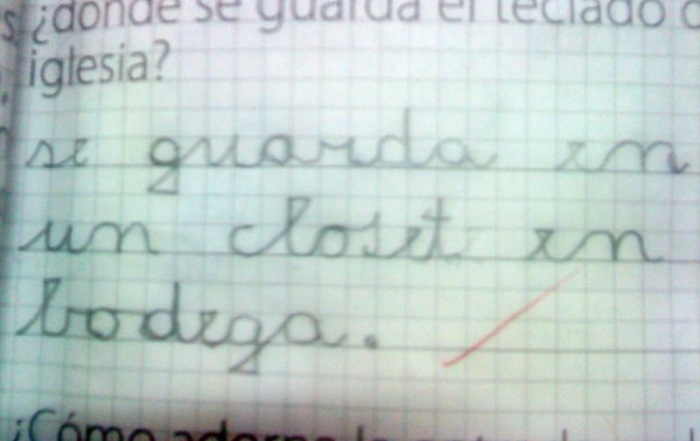 s ¿donde se guarda el teclado
iglesia?
se guarda en
un closet en
bodega.
¿Cómo